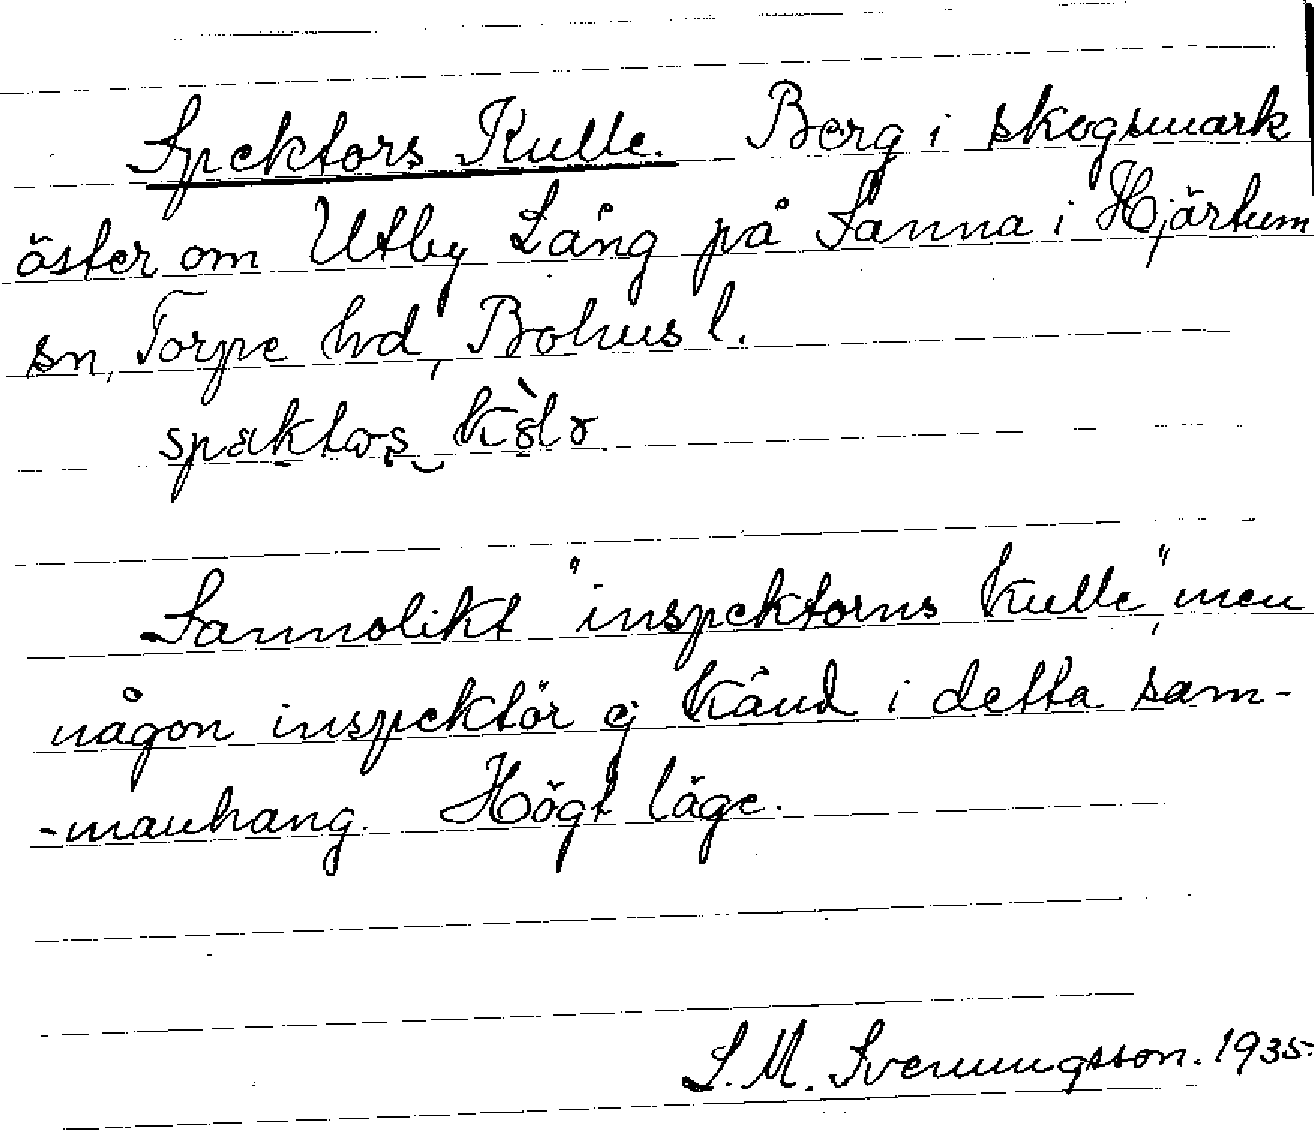 Spektors Kulle. Berg i skogsmark
öster om Utby Lång på Sanna i Hjärtum
sn, Torpe hd, Bohusl.
Sannolikt "inspektorns kulle", men
någon inspektör ej känd i detta sam-
-manhang. Högt läge.
S. M. Svenungsson. 1935.